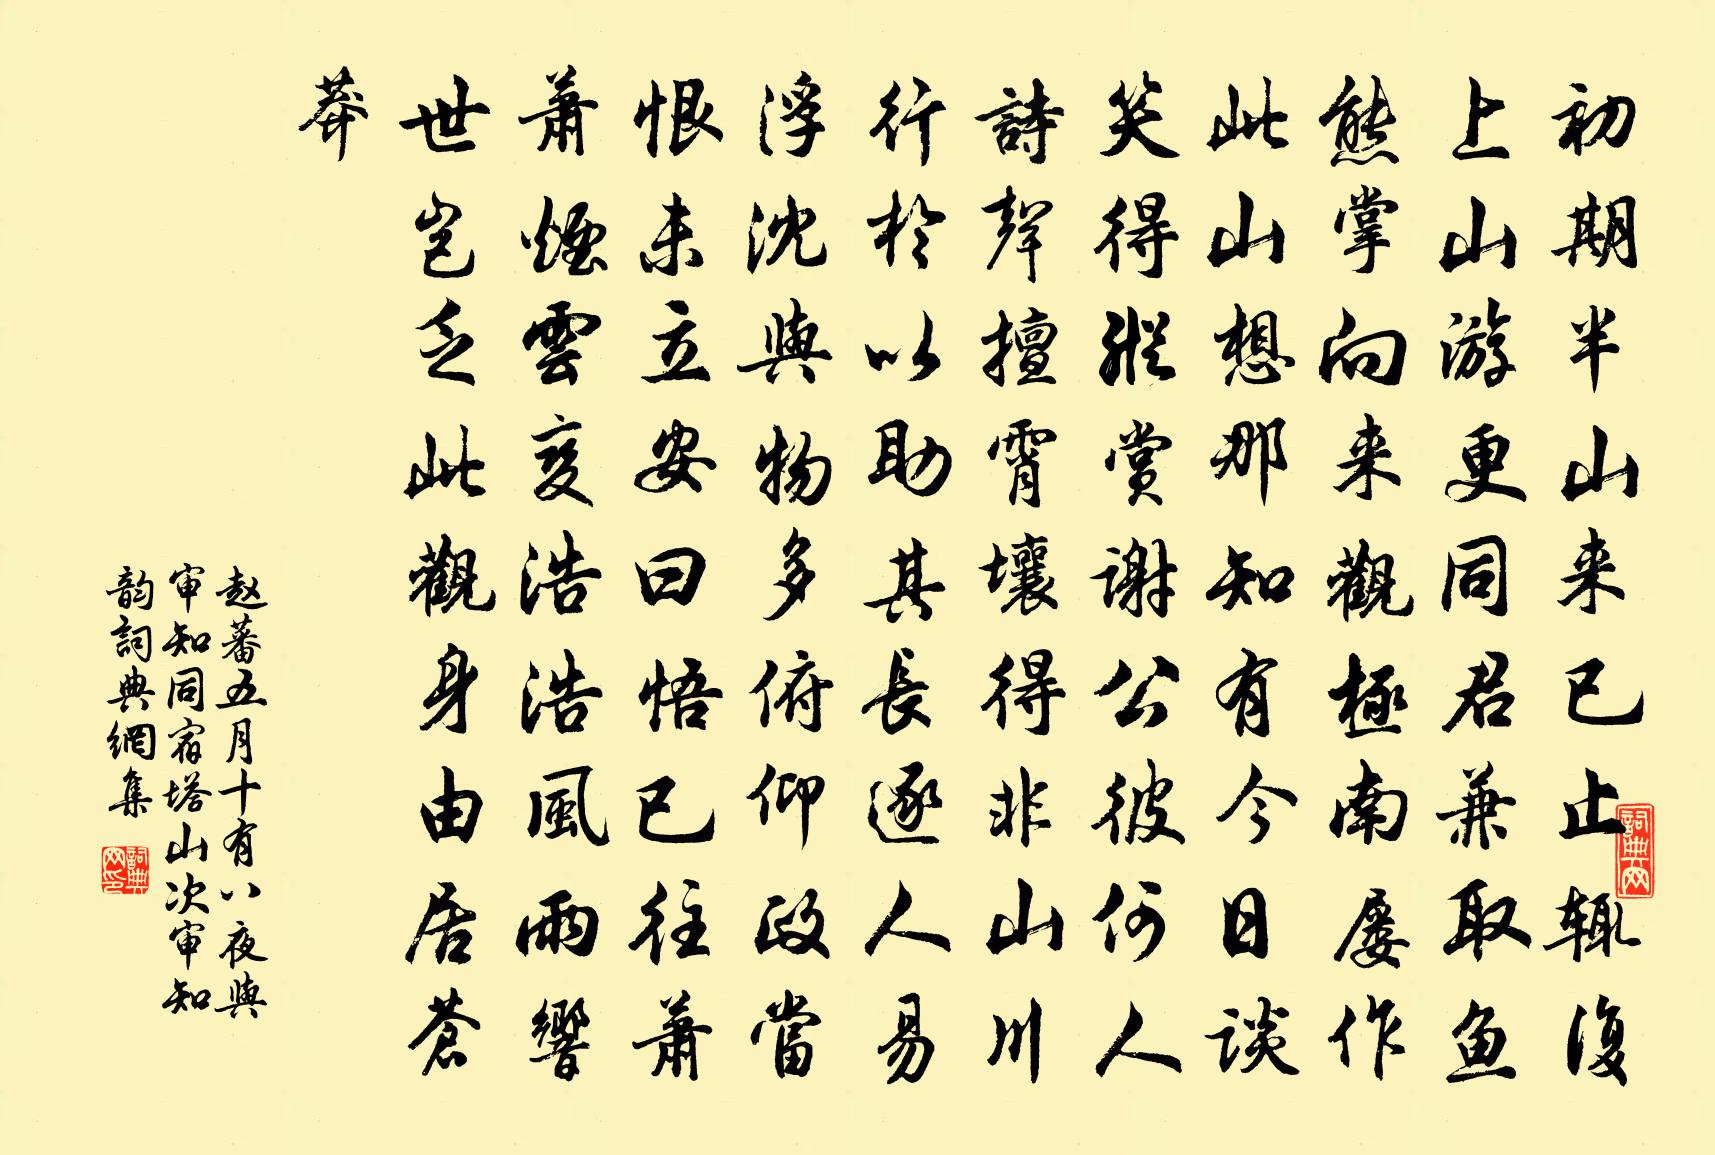 初期半山来已止輒復
上山游更同君兼取魚
熊掌向来觀極南屡作
此山想那知有今日談
笑得縱賞謝公彼何人
詩聲擅霄壤得非山川
行於以助其長逐人易
浮沈與物多俯仰政當
恨未立安曰悟已往蕭
蕭煙雲变浩浩風雨響
世岂乏此觀身由居蒼
莽
赵蕃五月十有八夜與
审知同宿塔山次审知
韵詞典網集
詞典网
詞典网印